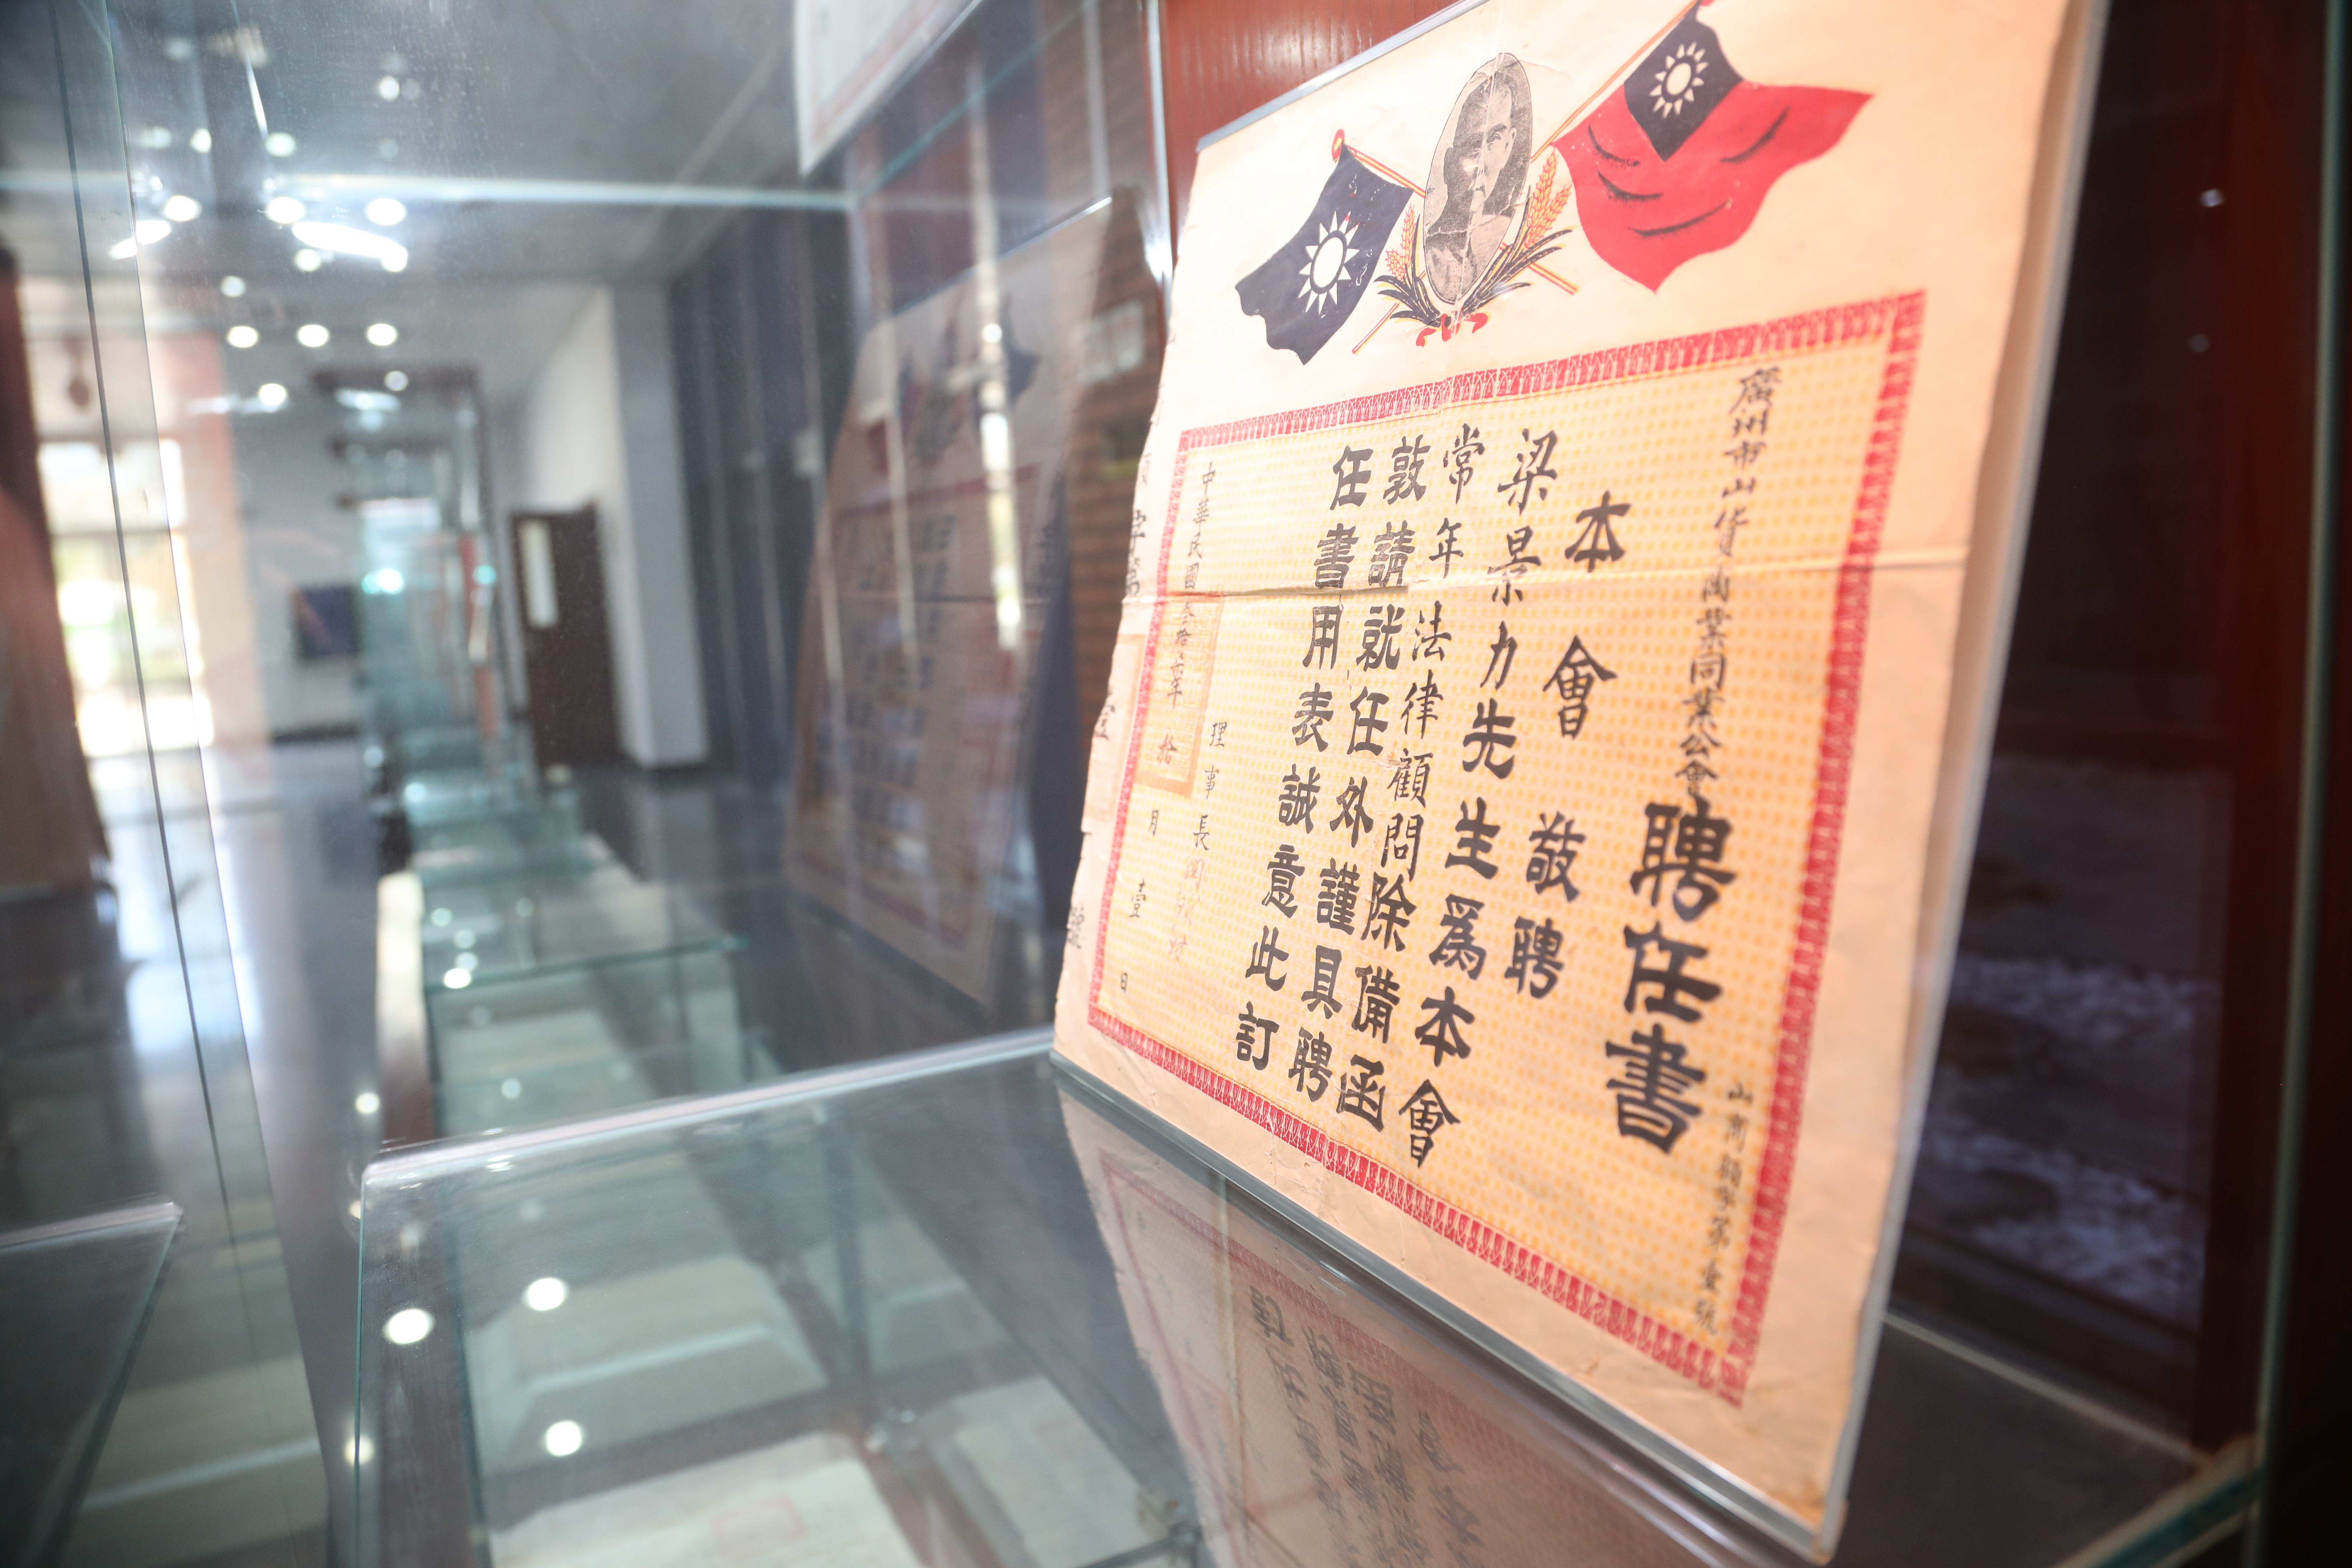 廣州市山貨陶業同業公會聘任書
山商顧字第壹號
本會敬聘
梁景力先生爲本會
常年法律顧問除備函
敦請就任外謹具聘
任書用表誠意此訂
理事長
中華民國叁拾六年拾月壹日